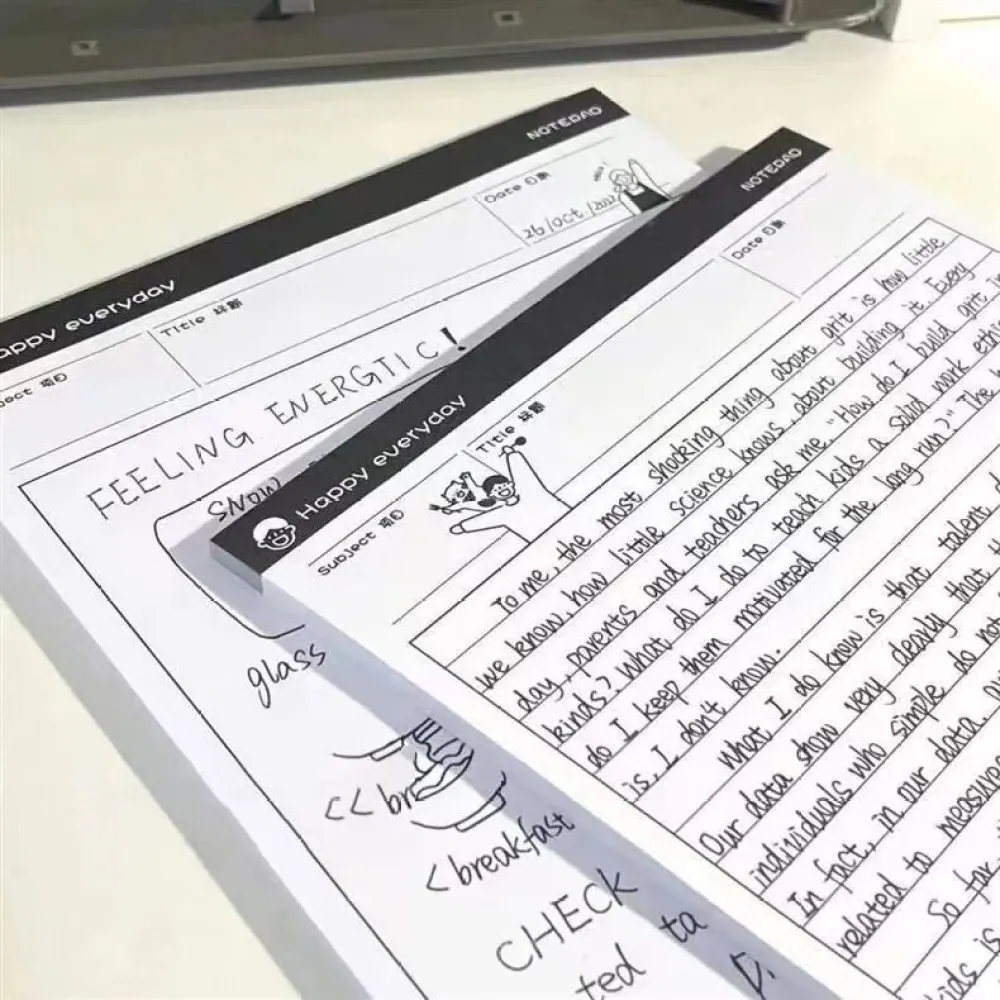 NOTEPAD
Happy everyday
Date 日期
26/Oct/2022
Title 标题
Subject 项目
FEELING ENERGTIC!
SNOW
glass
<< br
< breakfast
CHECK
ta
ted
NOTEPAD
Happy everyday
Date 日期
Title 标题
Subject 项目
To me, the most shocking thing about grit is how little
we know, how little science knows, about building it. Every
day, parents and teachers ask me, "How do I build grit in
kinds? What do I do to teach kids a solid work ethi
do I keep them motivated for the long run?" The h
is, I don't know.
What I do know is that talent d
Our data show very clearly that th
individuals who simple do not
In fact, in our data,
related to measures
So far,
kids is